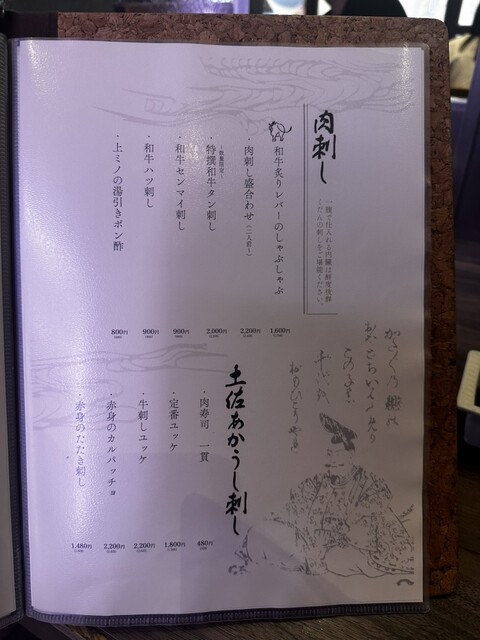 肉刺し
一頭で仕入れる内臓は鮮度抜群
くだんの刺しをご堪能ください。
和牛炙りレバーのしゃぶしゃぶ
1,600円
・肉刺し盛合わせ(二人前〜)
2,200円
・特撰和牛タン刺し
2,000円
・和牛センマイ刺し
900円
・和牛ハツ刺し
900円
・上ミノの湯引きポン酢
800円
土佐あかうし刺し
・肉寿司 一貫
480円
・定番ユッケ
1,800円
・牛刺しユッケ
2,200円
・赤身のカルパッチョ
2,200円
・赤身のたたき刺し
1,480円